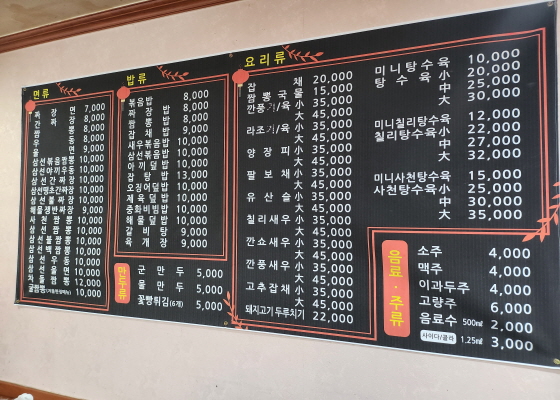 면류
짜 장 면 7,000
간 짜 장 8,000
짬 뽕 8,000
우 동 8,000
울 면 9,000
10,000
10,000
10,000
10,000
10,000
10,000
9,000
10,000
10,000
10,000
10,000
10,000
12,000
10,000
밥류
볶 음 밥 8,000
짜 장 밥 8,000
짬 뽕 밥 9,000
잡 채 밥 9,000
새 우 볶 음 밥 9,000
10,000
10,000
잡 탕 밥 13,000
오 징 어 덮 밥 10,000
제 육 덮 밥 10,000
중 화 비 빔 밥 10,000
해 물 덮 밥 10,000
갈 비 탕 9,000
육 개 장 9,000
만두류
군 만 두 5,000
물 만 두 5,000
꽃빵튀김(6개) 5,000
요리류
잡 채 20,000
짬 뽕 국 물 15,000
깐풍기/육 小 35,000
大 45,000
라조기/육 小 35,000
大 45,000
양 장 피 小 35,000
大 45,000
팔 보 채 小 35,000
大 45,000
유 산 슬 小 35,000
大 45,000
칠리새우 小 35,000
大 45,000
깐쇼새우 小 35,000
大 45,000
깐풍새우 小 35,000
大 45,000
고추잡채 小 35,000
大 45,000
돼지고기 두루치기 22,000
미니탕수육 10,000
탕 수 육 小 20,000
中 25,000
大 30,000
미니칠리탕수육 12,000
칠리탕수육 小 22,000
中 27,000
大 32,000
미니사천탕수육 15,000
사천탕수육 小 25,000
中 30,000
大 35,000
음료·주류
소주 4,000
맥주 4,000
이과두주 4,000
고량주 6,000
음료수 500㎖ 2,000
사이다/콜라 1.25㎖ 3,000